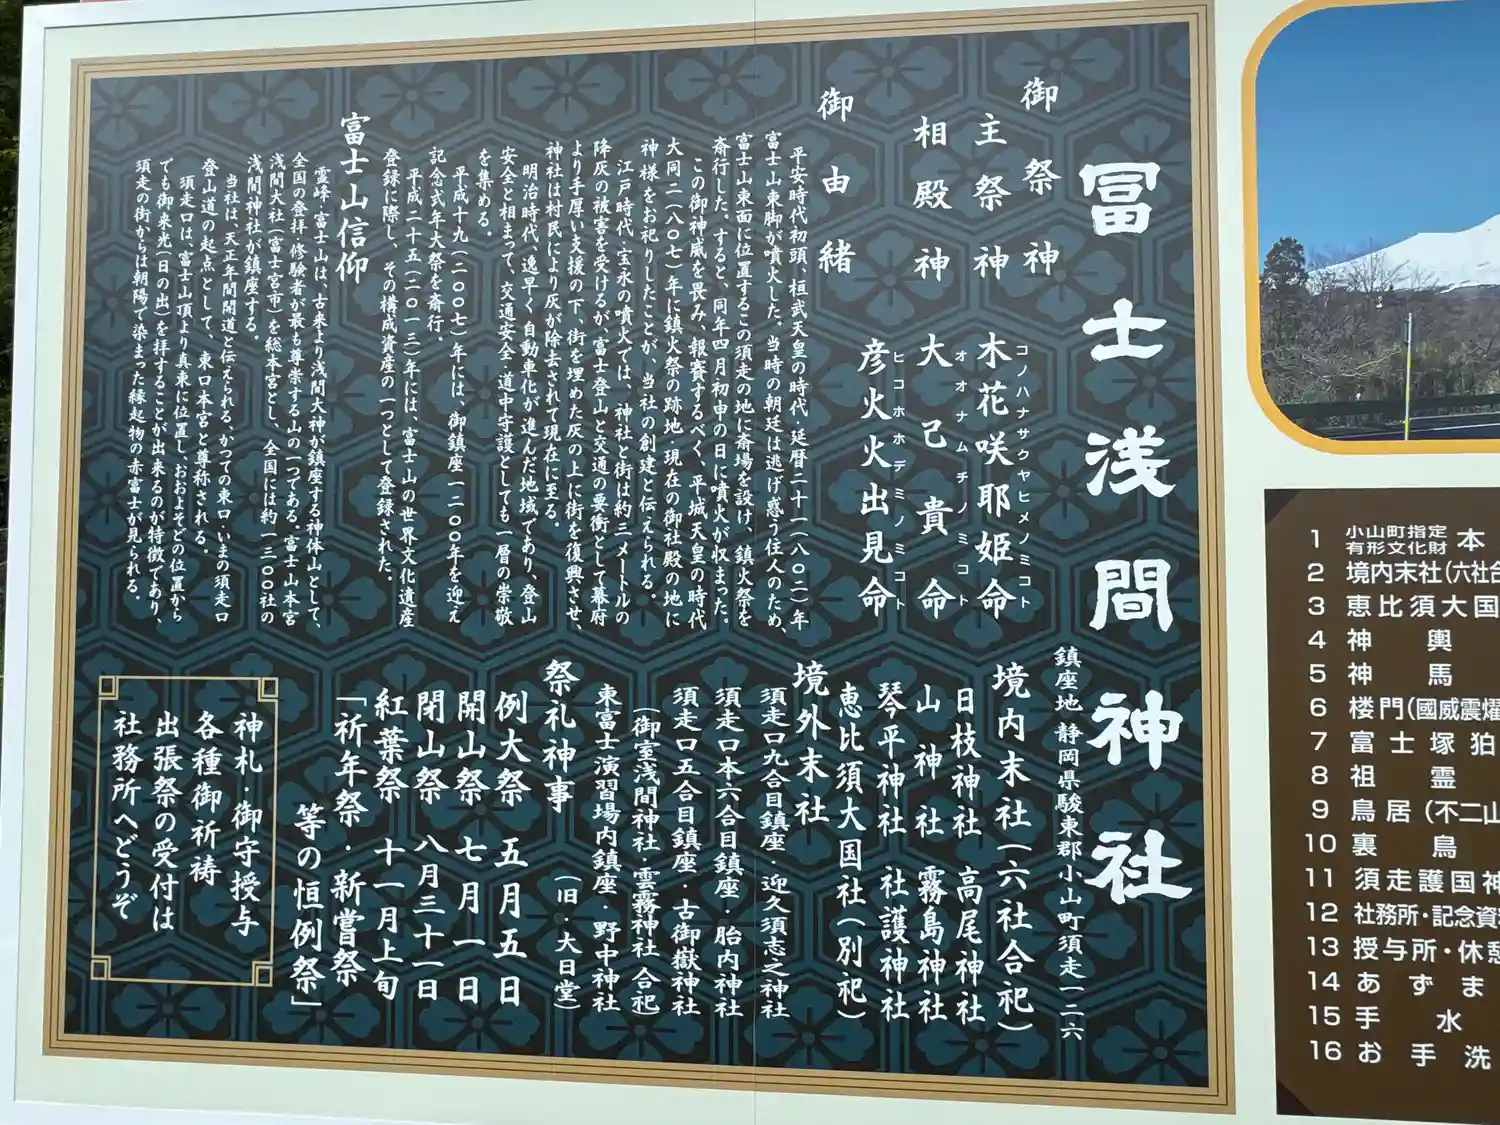 冨士浅間神社
鎮座地 静岡県駿東郡小山町須走一二六
御祭神
主祭神 木花咲耶姫命
コノハナサクヤヒメノミコト
相殿神 大己貴命
オオナムチノミコト
彦火火出見命
ヒコホホデミノミコト
御由緒
平安時代初頭、桓武天皇の時代・延暦二十一(八〇二)年
富士山東脚が噴火した。当時の朝廷は逃げ惑う住人のため、
富士山東面に位置するこの須走の地に斎場を設け、鎮火祭を
斎行した。すると、同年四月初申の日に噴火が収まった。
この御神威を畏み、報賽するべく、平城天皇の時代
大同二(八〇七)年に鎮火祭の跡地・現在の御社殿の地に
神様をお祀りしたことが、当社の創建と伝えられる。
江戸時代・宝永の噴火では、神社と街は約三メートルの
降灰の被害を受けるが、富士登山と交通の要衝として幕府
より手厚い支援の下、街を埋めた灰の上に街を復興させ、
神社は村民により灰が除去されて現在に至る。
明治時代、逸早く自動車化が進んだ地域であり、登山
安全と相まって、交通安全・道中守護としても一層の崇敬
を集める。
平成十九(二〇〇七)年には、御鎮座一二〇〇年を迎え
記念式年大祭を斎行。
平成二十五(二〇一三)年には、富士山の世界文化遺産
登録に際し、その構成資産の一つとして登録された。
富士山信仰
霊峰 富士山は、古来より浅間大神が鎮座する神体山として、
全国の登拝・修験者が最も尊崇する山の一つである。富士山本宮
浅間大社(富士宮市)を総本宮とし、全国には約一三〇〇社の
浅間神社が鎮座する。
当社は、天正年間開道と伝えられる、かつての東口・いまの須走口
登山道の起点として、東口本宮と尊称される。
須走口は、富士山頂より真東に位置し、おおよそどの位置から
でも御来光(日の出)を拝することが出来るのが特徴であり、
須走の街からは朝陽で染まった縁起物の赤富士が見られる。
境内末社(六社合祀)
日枝神社 高尾神社
山神社 霧島神社
琴平神社 社護神社
恵比須大国社(別祀)
境外末社
須走口九合目鎮座・迎久須志之神社
須走口本六合目鎮座・胎内神社
須走口五合目鎮座・古御嶽神社
(御室浅間神社・雲霧神社 合祀)
東富士演習場内鎮座・野中神社
(旧・大日堂)
祭礼神事
例大祭 五月五日
開山祭 七月一日
閉山祭 八月三十一日
紅葉祭 十一月上旬
「祈年祭・新嘗祭
等の恒例祭」
神札・御守授与
各種御祈祷
出張祭の受付は
社務所へどうぞ
1 小山町指定有形文化財 本
2 境内末社(六社合
3 恵比須大国
4 神輿
5 神馬
6 楼門(國威震燿
7 富士塚狛
8 祖霊
9 鳥居(不二山
10 裏鳥
11 須走護国神
12 社務所・記念資
13 授与所・休憩
14 あずま
15 手水
16 お手洗